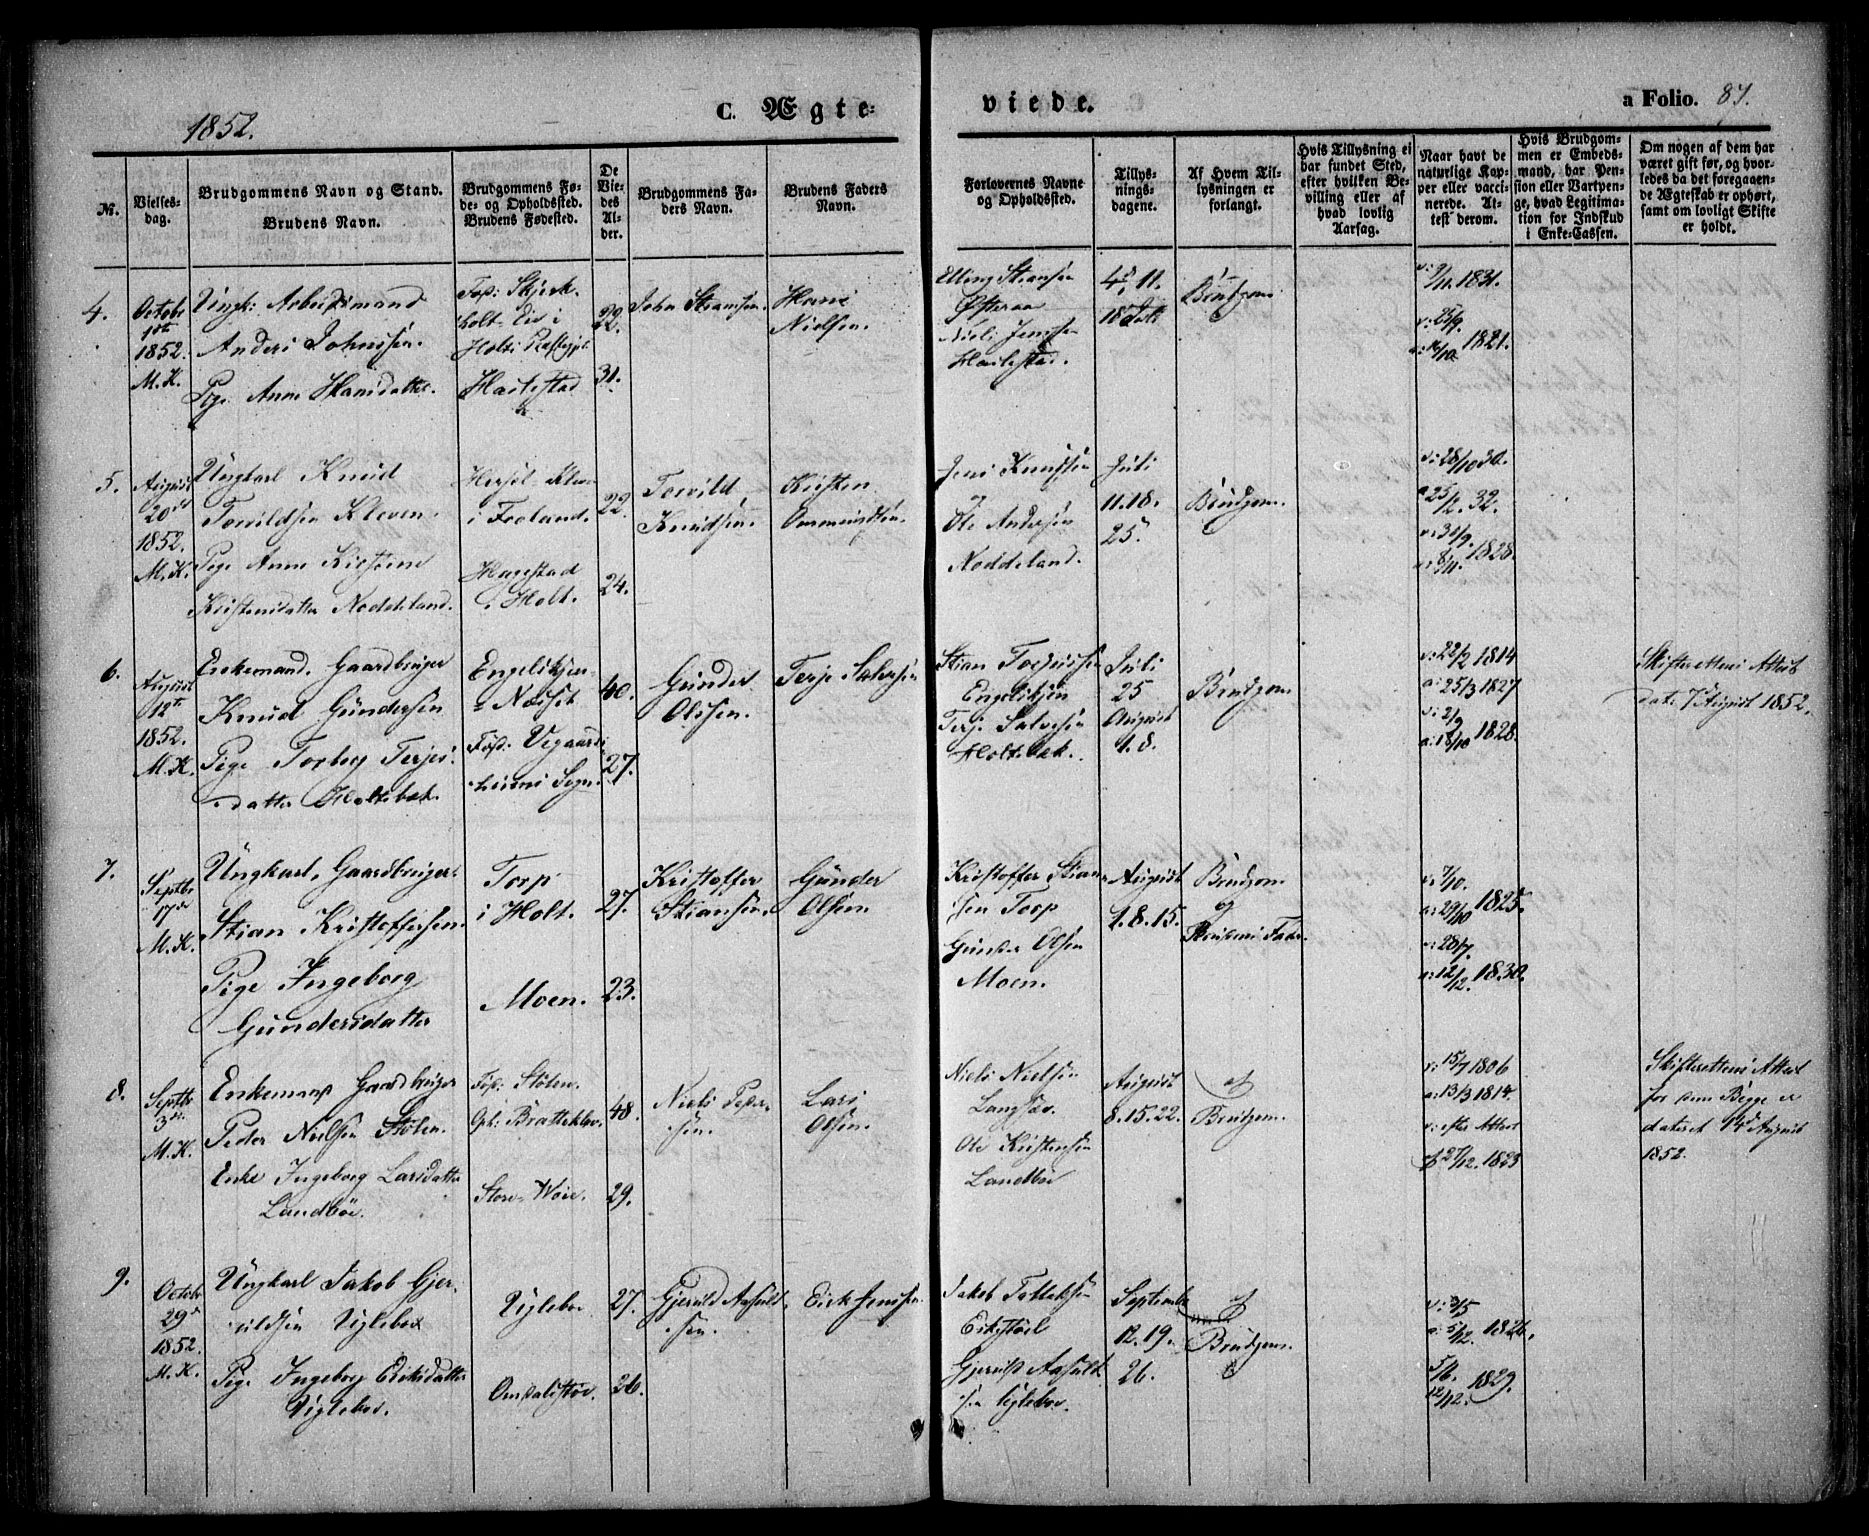 1852.
C. Ægte-
viede.
a Folio. 87.
№.
Vielses-
dag.
Brudgommens Navn og Stand.
Brudens Navn.
Brudgommens Fø-
de- og Opholdssted.
Brudens Fødested.
De
Vie-
des
Al-
der.
Brudgommens Fa-
ders Navn.
Brudens Faders
Navn.
Forlovernes Navne
og Opholdssted.
Tillys-
nings-
dagene.
Af Hvem Til-
lysningen er
forlangt.
Hvis Tillysning ei
har fundet Sted,
efter hvilken Be-
villing eller af
hvad lovlig
Aarsag.
Naar havt de
naturlige Kop-
per eller vacci-
nerede. At-
test derom.
Hvis Brudgom-
men er Embeds-
mand, har Pen-
sion eller Vartpen-
ge, hvad Legitima-
tion for Indskud
i Enke-Cassen.
Om nogen af dem har
været gift før, og hvor-
ledes da det foregaaen-
de Ægteskab er ophørt,
samt om lovligt Skifte
er holdt.
4.
Octobr
1ste
1852.
M.K.
Ungk: Arbeidsmand
Anders Johnsen.
Pige Anne Hansdatter.
Holts
Hartestad
22.
31.
John
Hans
Nielsen.
Elling Stiansen
Østeraa
Niels Jensen
Hartestad.
11.
18
Brudgom
v: 9/11. 1831.
1821.
5.
August
20de
1852.
M.K.
Ungkarl Knud
Torvildsen Kleven.
Pige Anne Kirstine
Kristensdatter Noddeland.
i Froland.
Hagestad
i Holt.
22.
24.
Torvild
Knudsen.
Kristen
Ommundsen.
Jens Knudsen
Ole Andersen
Noddeland.
Juli
11.18.
25.
Brudgom.
v: 28/10 30.
a 25/2. 32.
1828.
6.
August
12te
1852.
M.K.
Enkemand. Gaardbruger
Knud Gundersen
Pige Torborg Terjes-
datter Holtebek.
Fød: Vegaards-
heiens Sogn.
40.
27.
Gunder
Olsen.
Terje Salvesen
Stian Torjussen
Terje Salvesen
Holtebek.
Juli
25
August
1.8.
Brudgom
v: 22/2 1814
a: 25/3 1827
v: 2/9
a: 18/10 1828.
Skifterettens Attest
dat: 7 August 1852.
7.
Septbr
17de
M.K.
Ungkarl, Gaardbruger
Stian Kristoffersen.
Pige Ingeborg
Gundersdatter
Torp
i Holt.
Moen.
27.
23.
Kristoffer
Stiansen.
Gunder
Olsen
Kristoffer Stian-
sen Torp
Gunder Olsen
Moen.
August
1.8.15.
Brudgom
og
Brudens Fader.
v: 7/10.
a: 29/10 1825.
v: 28/7.
a: 12/12. 1830.
8.
Septbr
3de
M.K.
Enkemand Gaardbruger
Peder Nielsen Stölen.
Enke Ingeborg Larsdatter
Landböe.
Fød: Stölen.
48.
29.
Niels Peder-
sen.
Lars
Olsen.
Niels Nielsen
Ole Kristensen
Landböe
August
8.15.22.
af
Brudgom.
v: 15/7 1806
a: 13/3 1814.
v: efter Attest
27/12. 1823
Skifterettens Attest
for dem Begge er
dateret 14 August
1852.
9.
Octobr
29de
1852.
M.K.
Ungkarl Jakob Gjer-
uldsen Uglebøe
Pige Ingeborg Eriksdatter
Uglebøe.
Uglebøe
27.
26.
Gjeruld Aasuld-
sen.
Erik Jenssen.
Jakob Tellefsen
Gjeruld Aasuld-
sen Uglebøe.
September
12.19.
26.
af
Brudgom.
v: 3/5
a: 5/12. 1826.
5/6.
12/12. 1829.